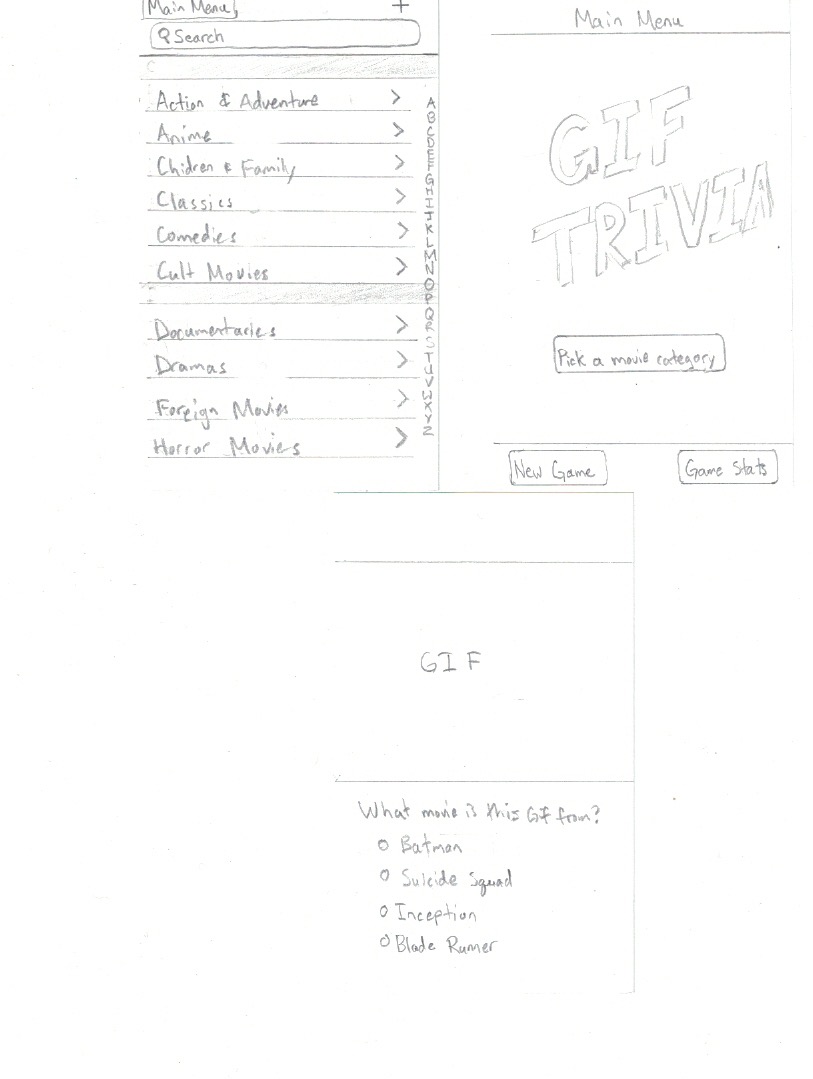 Main Menu
+
Search
C
Action & Adventure
Anime
Chidren & Family
Classics
Comedies
Cult Movies
Documentaries
Dramas
Foreign Movies
Horror Moviers
A
B
C
D
E
F
G
H
I
J
K
L
M
N
O
P
Q
R
S
T
U
V
W
X
Y
Z
Main Menu
GIF
TRIVIA
Pick a movie category
New Game
Game Stats
GIF
What movie is this GIF from?
Batman
Suicide Squad
Inception
Blade Runner